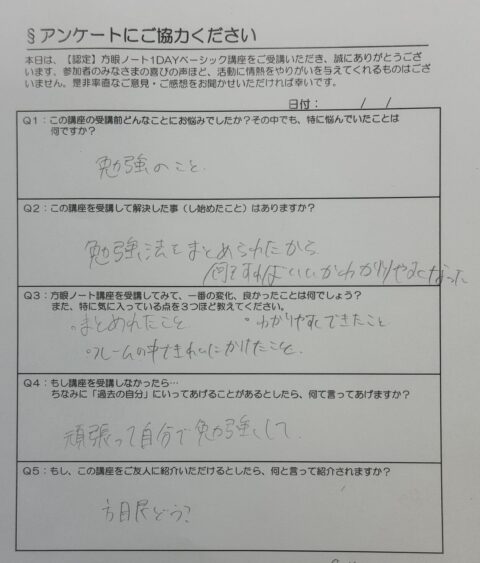 §アンケートにご協力ください
本日は、【認定】方眼ノート1DAYベーシック講座をご受講いただき、誠にありがとうござ
います。参加者のみなさまの喜びの声ほど、活動に情熱をやりがいを与えてくれるものはござ
いません。是非率直なご意見・ご感想をお聞かせいただければ幸いです。
日付： / /
Q1：この講座の受講前どんなことにお悩みでしたか？その中でも、特に悩んでいたことは
何ですか？
勉強のこと.
Q2：この講座を受講して解決した事（し始めたこと）はありますか？
勉強法をまとめられたから
何をすればいいかわかりやすくなった
Q3：方眼ノート講座を受講してみて、一番の変化、良かったことは何でしょう？
また、特に気に入っている点を3つほど教えてください。
・まとめれたこと ・わかりやすくできたこと
・フレームの中きれいにかけたこと.
Q4：もし講座を受講しなかったら…
ちなみに「過去の自分」にいってあげることがあるとしたら、何て言ってあげますか？
頑張って自分で勉強して.
Q5：もし、この講座をご友人に紹介いただけるとしたら、何と言って紹介されますか？
方眼どう？